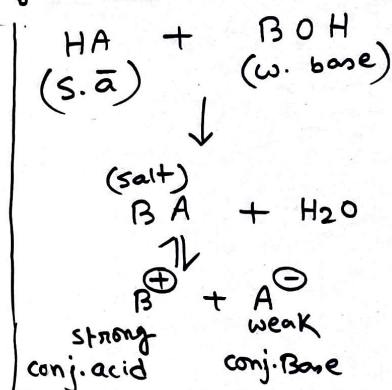 HA + BOH
(S. ā) (w. base)
↓
(salt)
BA + H2O
⇌
B⊕ + A⊖
strong weak
conj. acid conj. Base